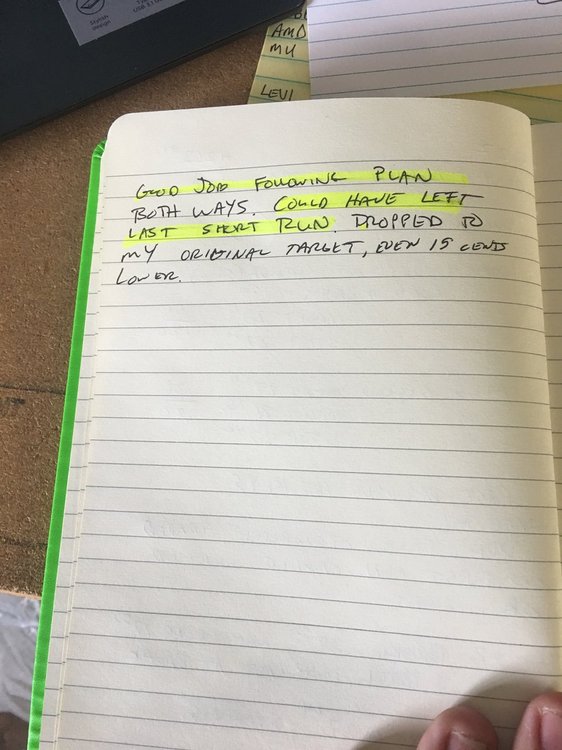 Stylish
Design
AMD
MU
LEVI
GOOD JOB FOLLOWING PLAN
BOTH WAYS. COULD HAVE LEFT
LAST SHORT RUN. DROPPED TO
MY ORIGINAL TARGET, EVEN 15 CENTS
LOWER.